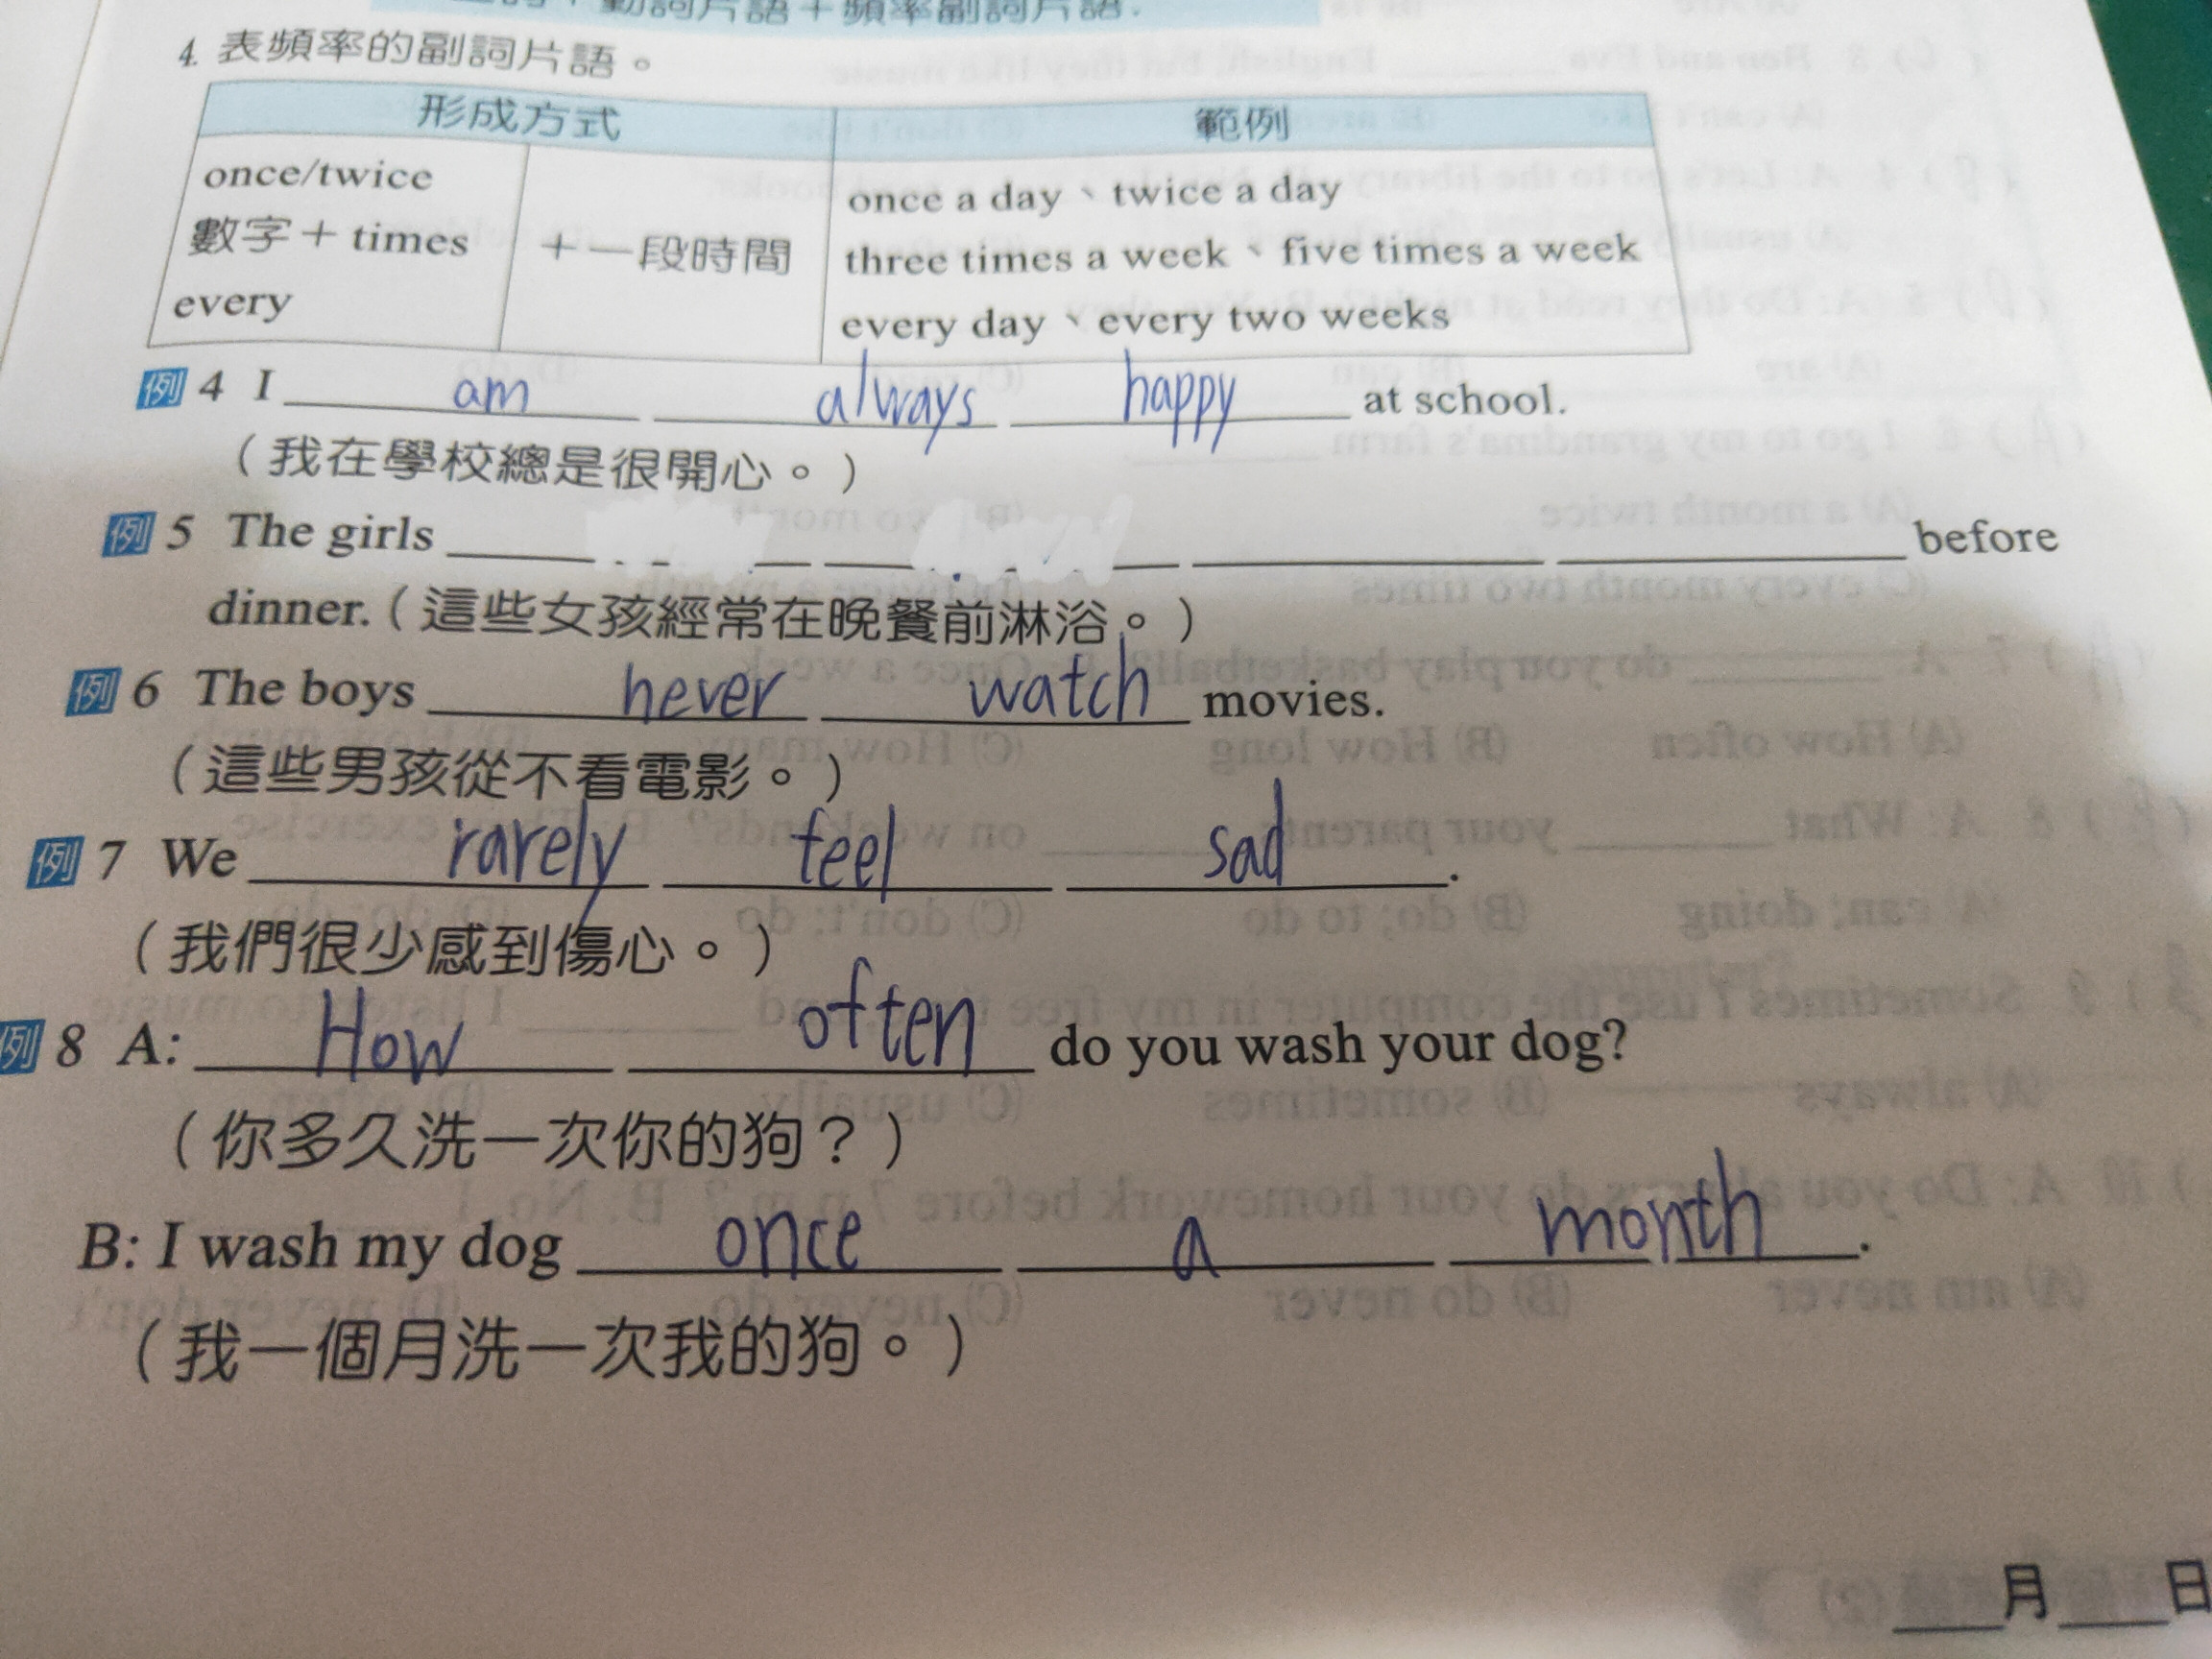 動詞片語＋頻率副詞片語.
4. 表頻率的副詞片語。
形成方式 範例
once/twice
數字＋times
every
＋一段時間
once a day、twice a day
three times a week、five times a week
every day、every two weeks
例 4 I am always happy at school.
（我在學校總是很開心。）
例 5 The girls ____ ____ ____ ____ before
dinner.（這些女孩經常在晚餐前淋浴。）
例 6 The boys never watch movies.
（這些男孩從不看電影。）
例 7 We rarely feel sad.
（我們很少感到傷心。）
例 8 A: How often do you wash your dog?
（你多久洗一次你的狗？）
B: I wash my dog once a month.
（我一個月洗一次我的狗。）
____月____日